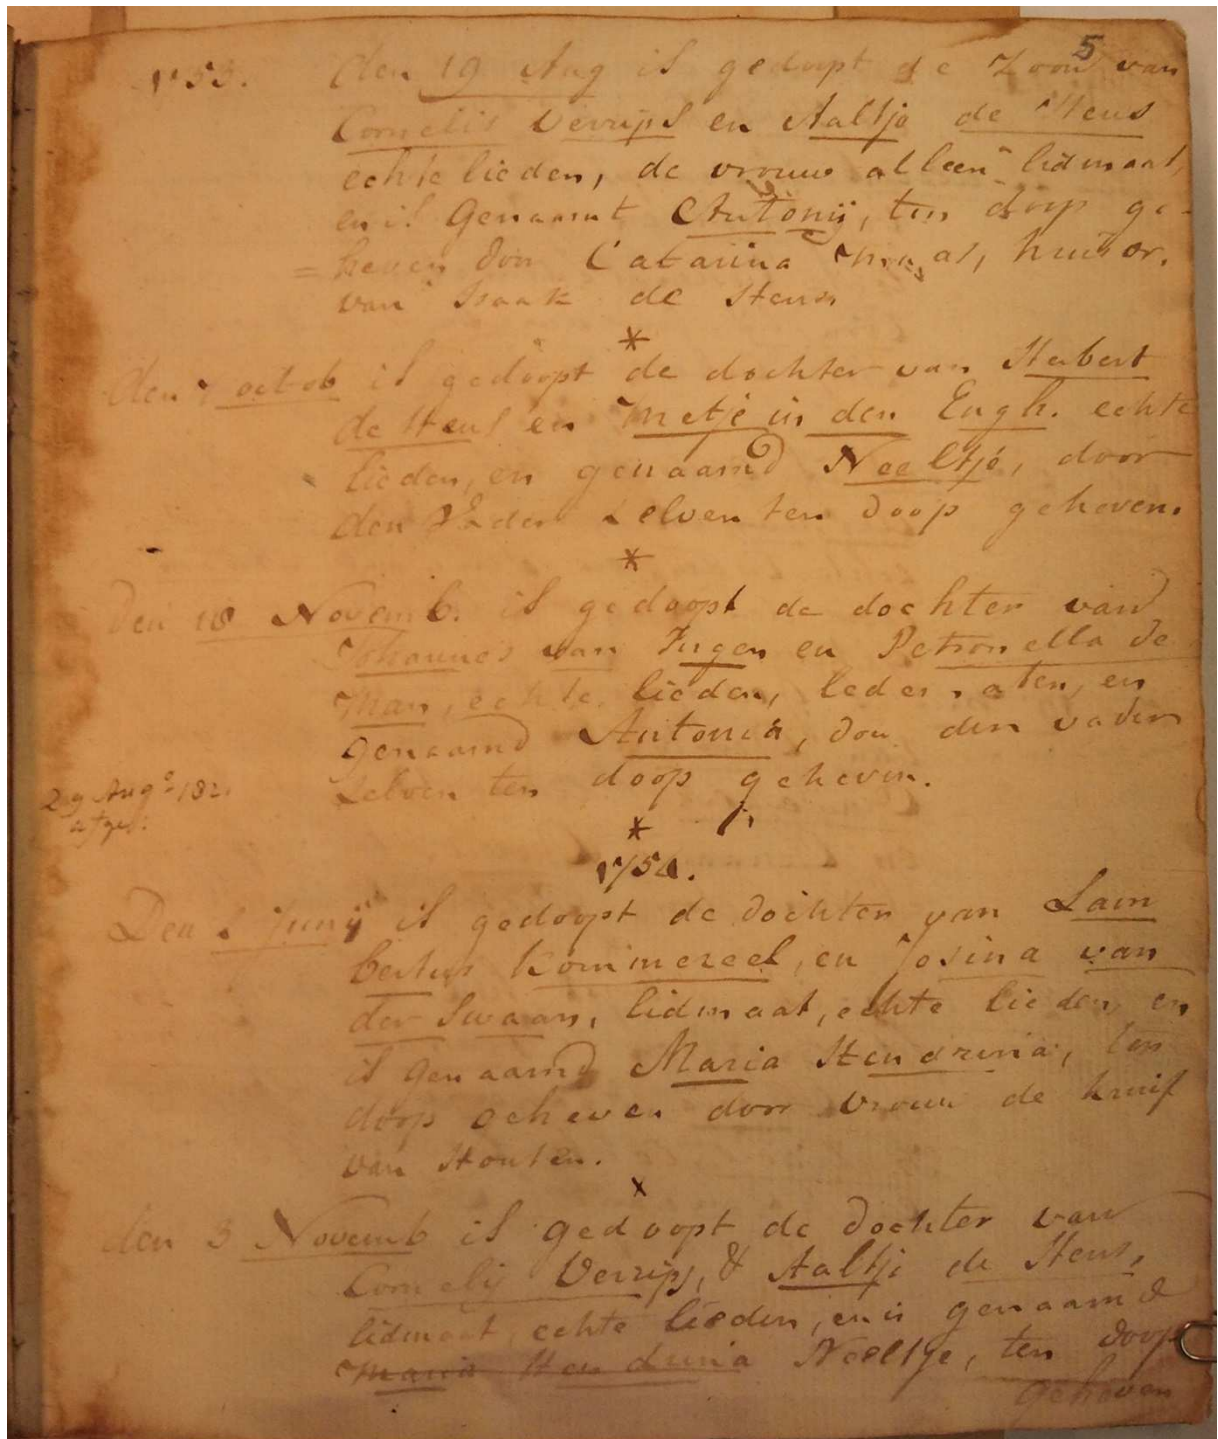 5
1753. den 19 Aug is gedoopt de Zoon van
Cornelis Verrips en Aaltje de Heus
echte lieden, de vrouw alleen lidmaat,
en is Genaamt Antonij, ten doop ge-
=heven door Catarina maas, huisvr.
van Isaak de Heus
*
den 7 octob is gedoopt de dochter van Herbert
de Heus en Metje in den Engh. echte
lieden, en genaamd Neeltje, door
den Vader selven ten doop geheven.
*
Den 18 Novemb. is gedoopt de dochter van
Johannes van Ingen en Petronella de
Man, echte lieden, ledematen, en
genaamd Antonia, door den vader
selven ten doop geheven.
29 Augs 182
afgeg:
*
1754.
Den Junij is gedoopt de dochter van Lam
bertus Kommezeel, en Josina van
der Swaan, lidmaat, echte lieden en
is genaamd Maria Hendrina, ten
doop geheven door vrouw de kruif
van Houten.
x
den 3 Novemb is gedoopt de dochter van
Cornelis Verrips, & Aaltje de Heus,
lidmaat, echte lieden, en is genaamd
Maria Hendrina Neeltje, ten doop
geheven